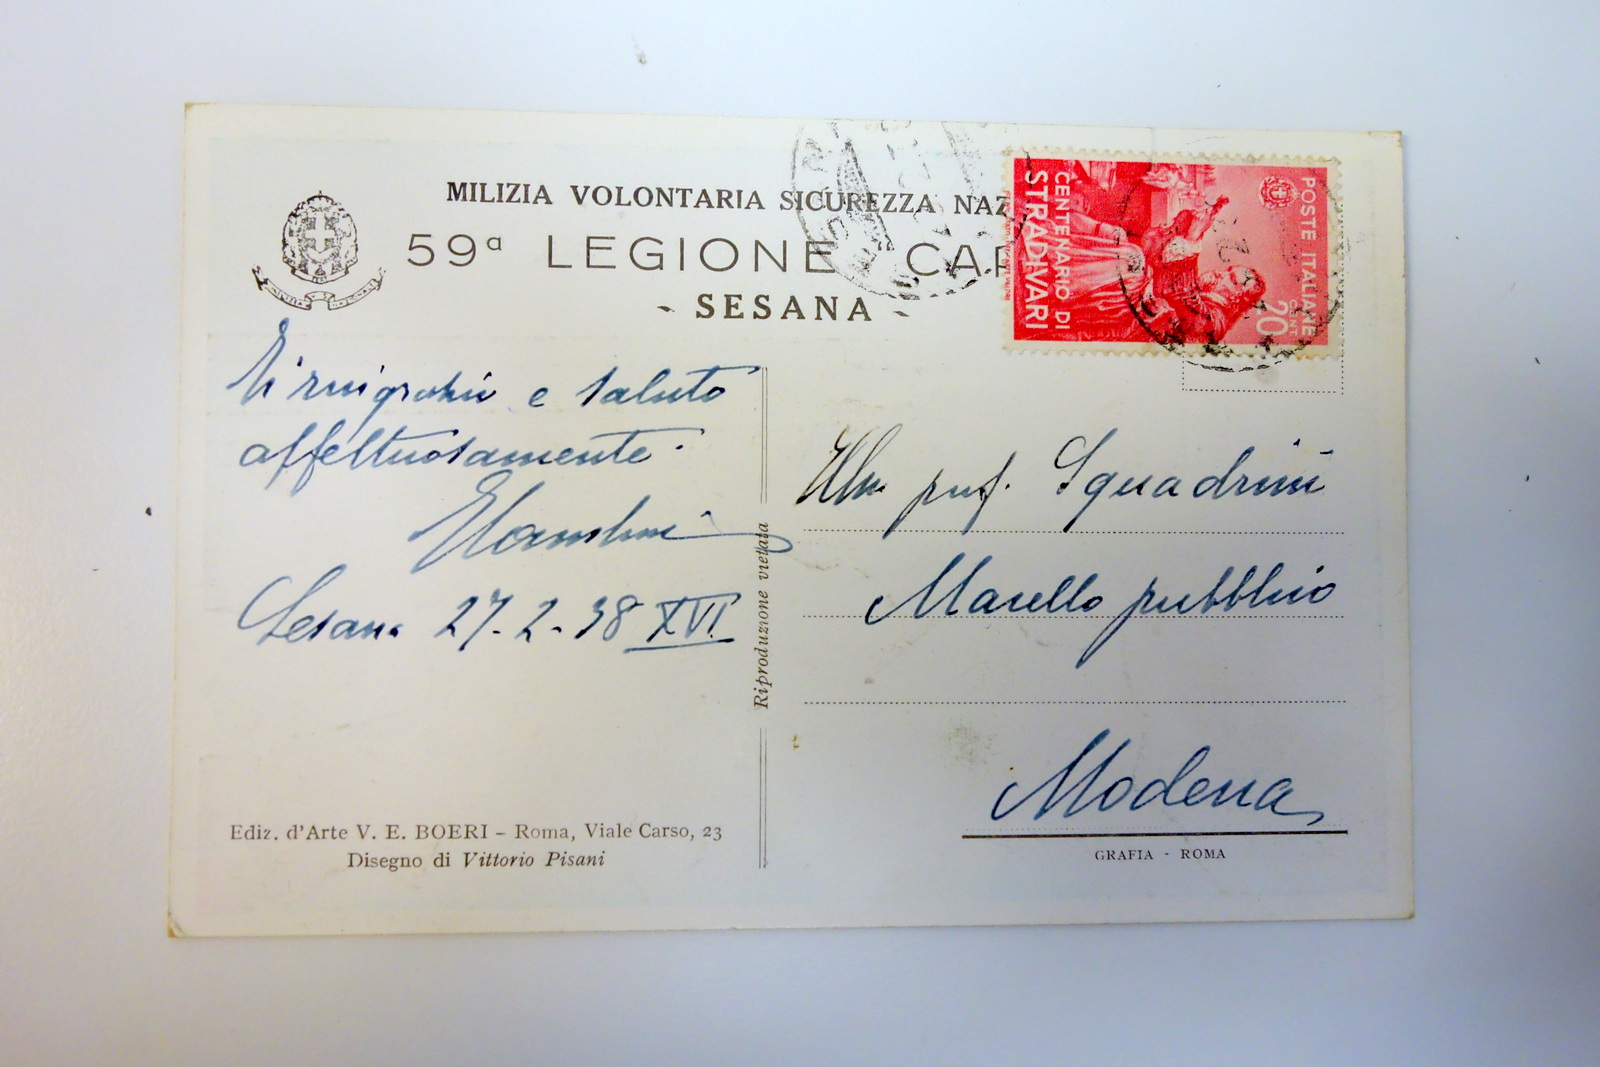 MILIZIA VOLONTARIA SICUREZZA NAZ
59ª LEGIONE CAR
- SESANA -
POSTE ITALIANE
20
CENT.
CENTENARIO DI
STRADIVARI
e saluto
affettuosamente.
Sesana 27-2-38 XVI.
Riproduzione vietata
Ill. prof. Squadrini
Macello pubblico
Modena
Ediz. d'Arte V. E. BOERI - Roma, Viale Carso, 23
Disegno di Vittorio Pisani
GRAFIA - ROMA